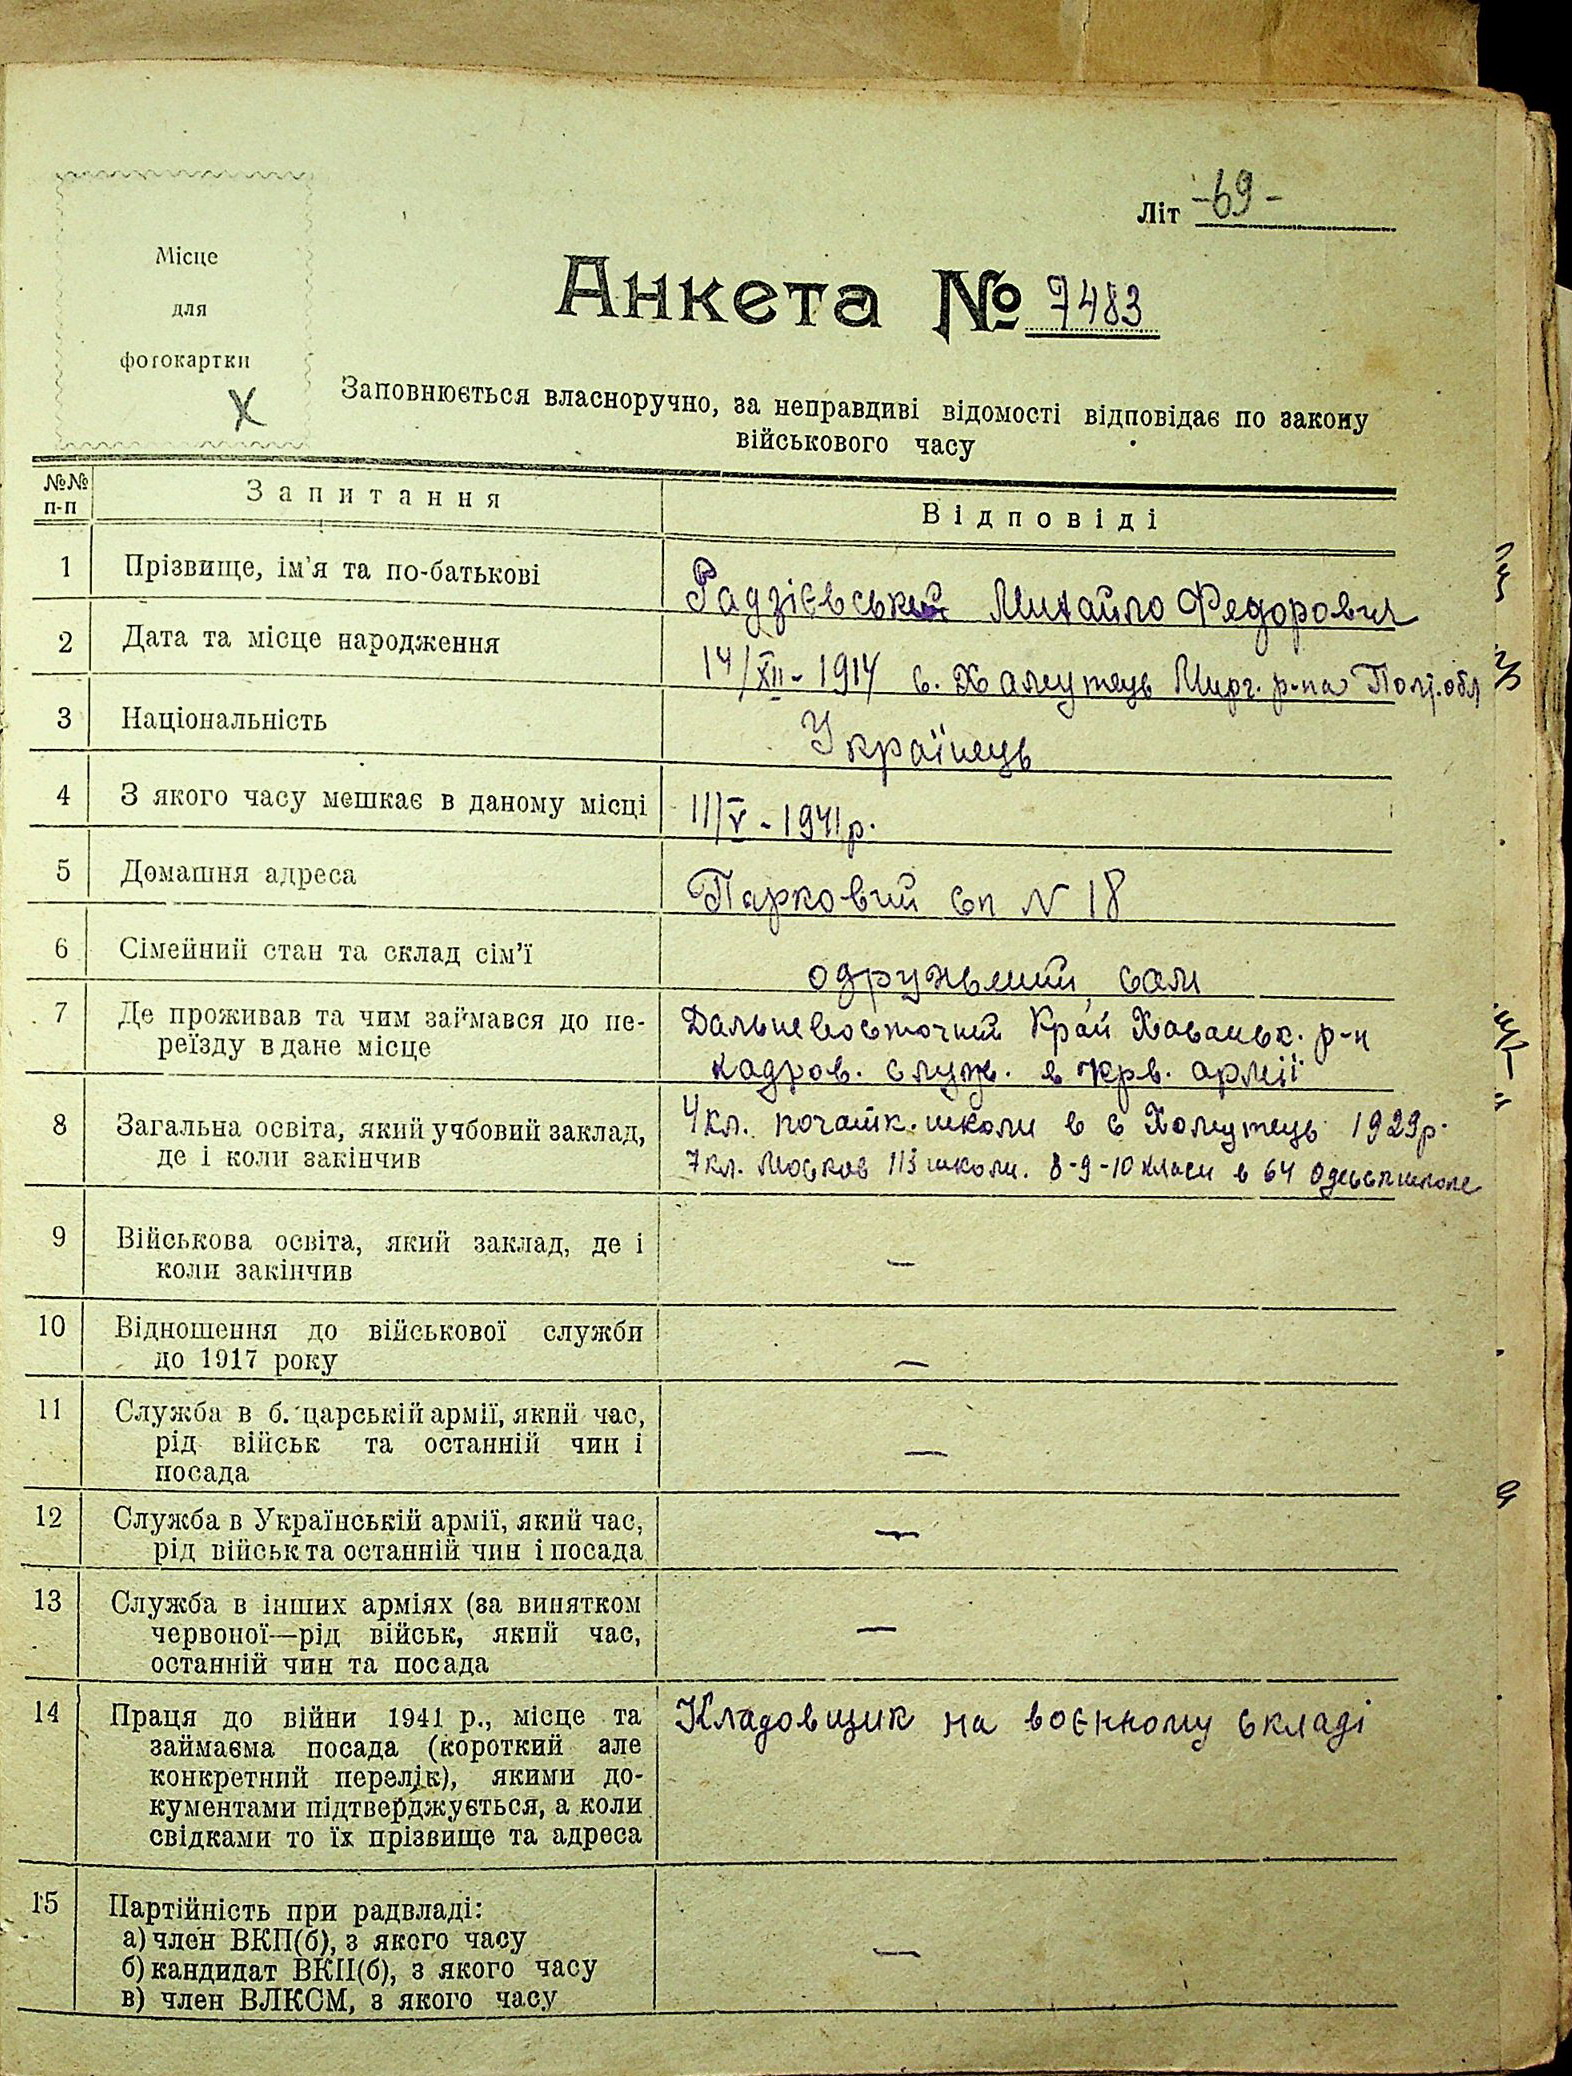 Літ -69-
Місце
для
фотокартки
X
Анкета № 7483
Заповнюється власноручно, за неправдиві відомості відповідає по закону
військового часу
№№ п-п
Запитання
Відповіді
1 Прізвище, ім'я та по-батькові
Радзієвський Михайло Федорович
2 Дата та місце народження
14/XII - 1914 с. Хамутець Мирг. р-на Полт. обл
3 Національність
Українець
4 З якого часу мешкає в даному місці
11/V - 1941 р.
5 Домашня адреса
Парковий сп N 18
6 Сімейний стан та склад сім'ї
одружений, сам
7 Де проживав та чим займався до пе-
реїзду в дане місце
Дальневосточний Край р-н
кадров. служ. в чрв. армії
8 Загальна освіта, який учбовий заклад,
де і коли закінчив
4 кл. початк. школи в с Хомутець 1929 р.
7 кл. Москов 113 школи. 8-9-10 класи в 64 школе
9 Військова освіта, який заклад, де і
коли закінчив
—
10 Відношення до військової служби
до 1917 року
—
11 Служба в б. царській армії, який час,
рід військ та останній чин і
посада
—
12 Служба в Українській армії, який час,
рід військ та останній чин і посада
—
13 Служба в інших арміях (за винятком
червоної—рід військ, який час,
останній чин та посада
—
14 Праця до війни 1941 р., місце та
займаєма посада (короткий але
конкретний перелік), якими до-
кументами підтверджується, а коли
свідками то їх прізвище та адреса
Кладовщик на воєнному складі
15 Партійність при радвладі:
а) член ВКП(б), з якого часу
б) кандидат ВКП(б), з якого часу
в) член ВЛКСМ, з якого часу
—